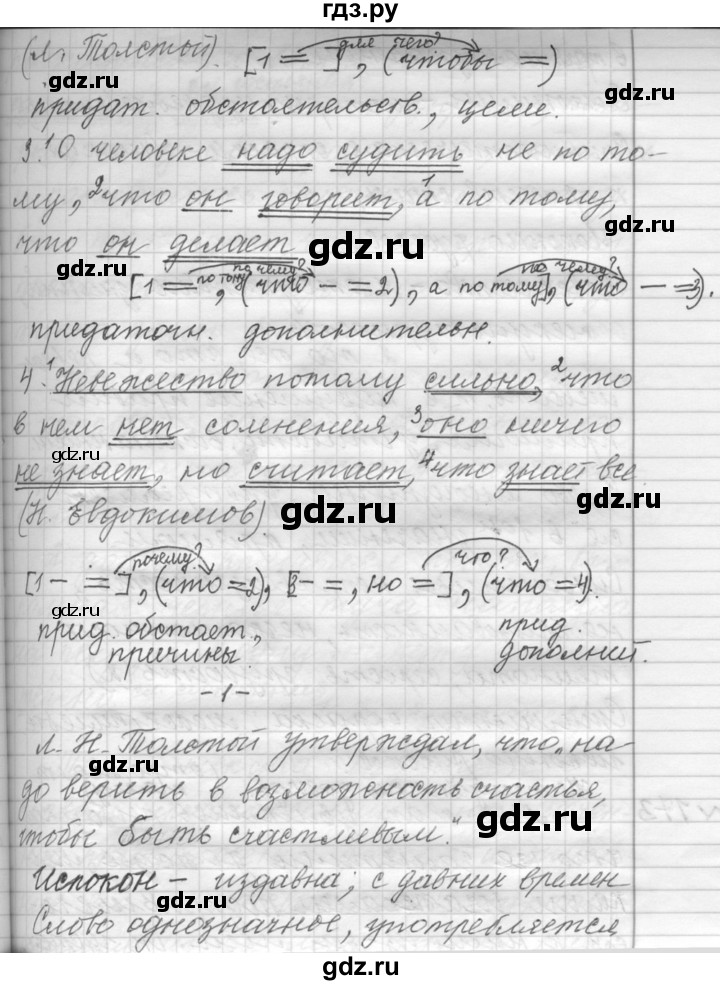 гдз.ру
(Л. Толстой). [1 = ], (чтобы =)
для чего?
gdz.ru
придат. обстоятельств., цели.
3. 1О человеке надо судить не по то-
му, 2что он говорит, 1а по тому,
gdz.ru
что он делает
gdz.ru
по чему? по чему?
[1 = по тому, (что – = 2), а по тому], (что – = 3).
придаточн. дополнительн.
gdz.ru
4. 1Невежество потому сильно, 2что
в нем нет сомнения, 3оно ничего
gdz.ru
не знает, но считает, 4что знает все.
(Н. Евдокимов).
gdz.ru
почему? что?
[1 – =], (что = 2), [3 – =, но =], (что = 4).
gdz.ru
прид. обстает., прид.
причины. дополнит.
gdz.ru
– 1 –
Л. Н. Толстой утверждал, что „на-
gdz.ru
до верить в возможность счастья,
чтобы быть счастливым."
gdz.ru
Испокон – издавна; с давних времен
gdz.ru
Слово однозначное, употребляется
gdz.ru